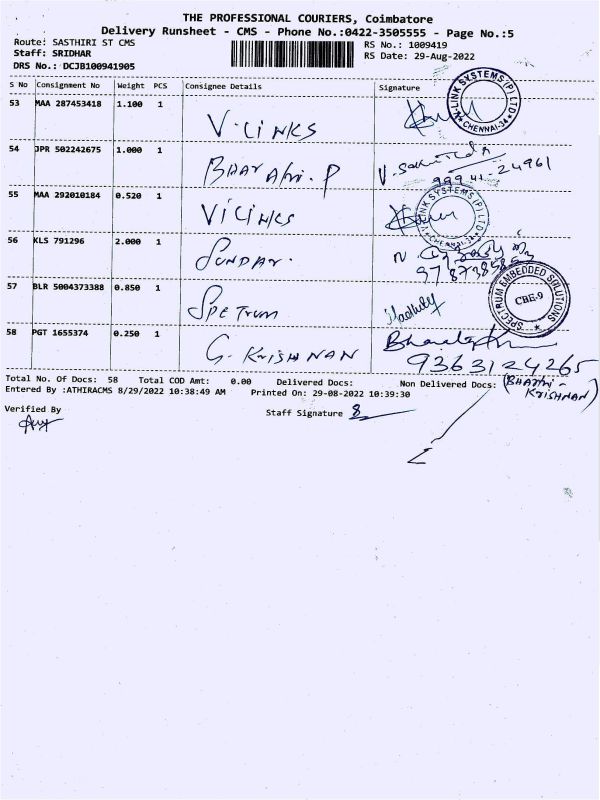 THE PROFESSIONAL COURIERS, Coimbatore
Delivery Runsheet - CMS - Phone No.:0422-3505555 - Page No.:5
Route: SASTHIRI ST CMS
Staff: SRIDHAR
DRS No.: DCJB100941905
RS No.: 1009419
RS Date: 29-Aug-2022
S No Consignment No Weight PCS Consignee Details Signature
53 MAA 287453418 1.100 1
V-LINKS
V-LINK SYSTEMS (P) LTD
CHENNAI-34
54 JPR 502242675 1.000 1
BHARATHI. P
999 41-24961
55 MAA 292010184 0.520 1
V-LINK SYSTEMS (P) LTD
CHENNAI-34
56 KLS 791296 2.000 1
SUNDAR.
57 BLR 5004373388 0.850 1
SPETRUM
SPECTRUM EMBEDDED SOLUTIONS
CBE-9
58 PGT 1655374 0.250 1
G. KRISHNAN
9363124265
Total No. Of Docs: 58 Total COD Amt: 0.00 Delivered Docs: Non Delivered Docs:
(BHARATHI-
KRISHNAN)
Entered By :ATHIRACMS 8/29/2022 10:38:49 AM Printed On: 29-08-2022 10:39:30
Verified By
Staff Signature